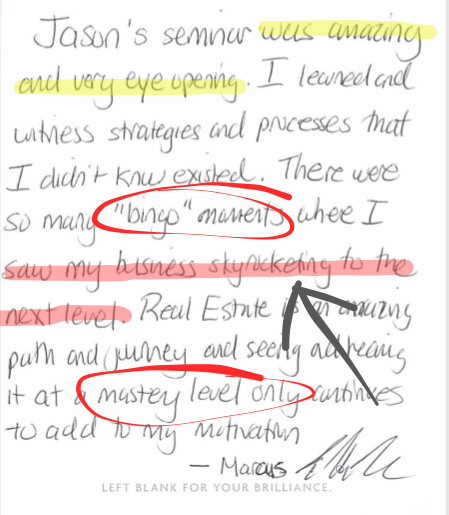 Jason's seminar was amazing
and very eye opening. I learned and
witness strategies and processes that
I didn't know existed. There were
so many "bingo" moments where I
saw my business skyrocketing to the
next level. Real Estate is an amazing
path and journey and seeing and hearing
it at a mastery level only continues
to add to my motivation
— Marcus
LEFT BLANK FOR YOUR BRILLIANCE.